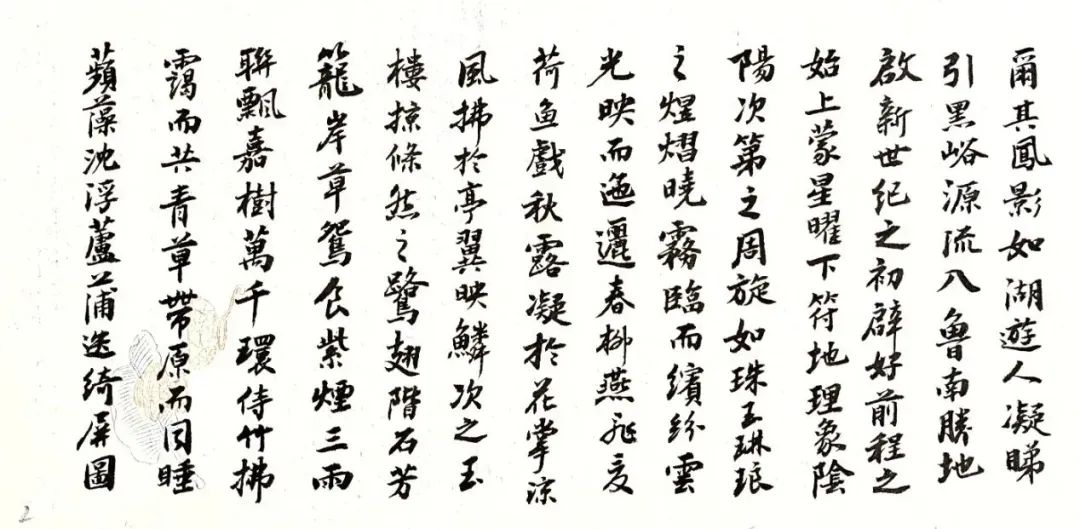 爾其鳳影如湖遊人凝睇
引黑峪源流入魯南勝地
啟新世紀之初辟好前程之
始上蒙星曜下符地理象陰
陽次第之周旋如珠玉琳琅
之煜熠曉霧臨而繽紛雲
光映而迤邐春柳燕飛夏
荷鱼戲秋露凝於花掌涼
風拂於亭翼映鱗次之玉
樓掠倏然之鷺翅階石芳
籠岸草鴛食紫煙三兩
聯飄嘉樹萬千環侍竹拂
靄而共青草帶原而同睡
蘋藻沈浮蘆蒲迭綺屏圖
2